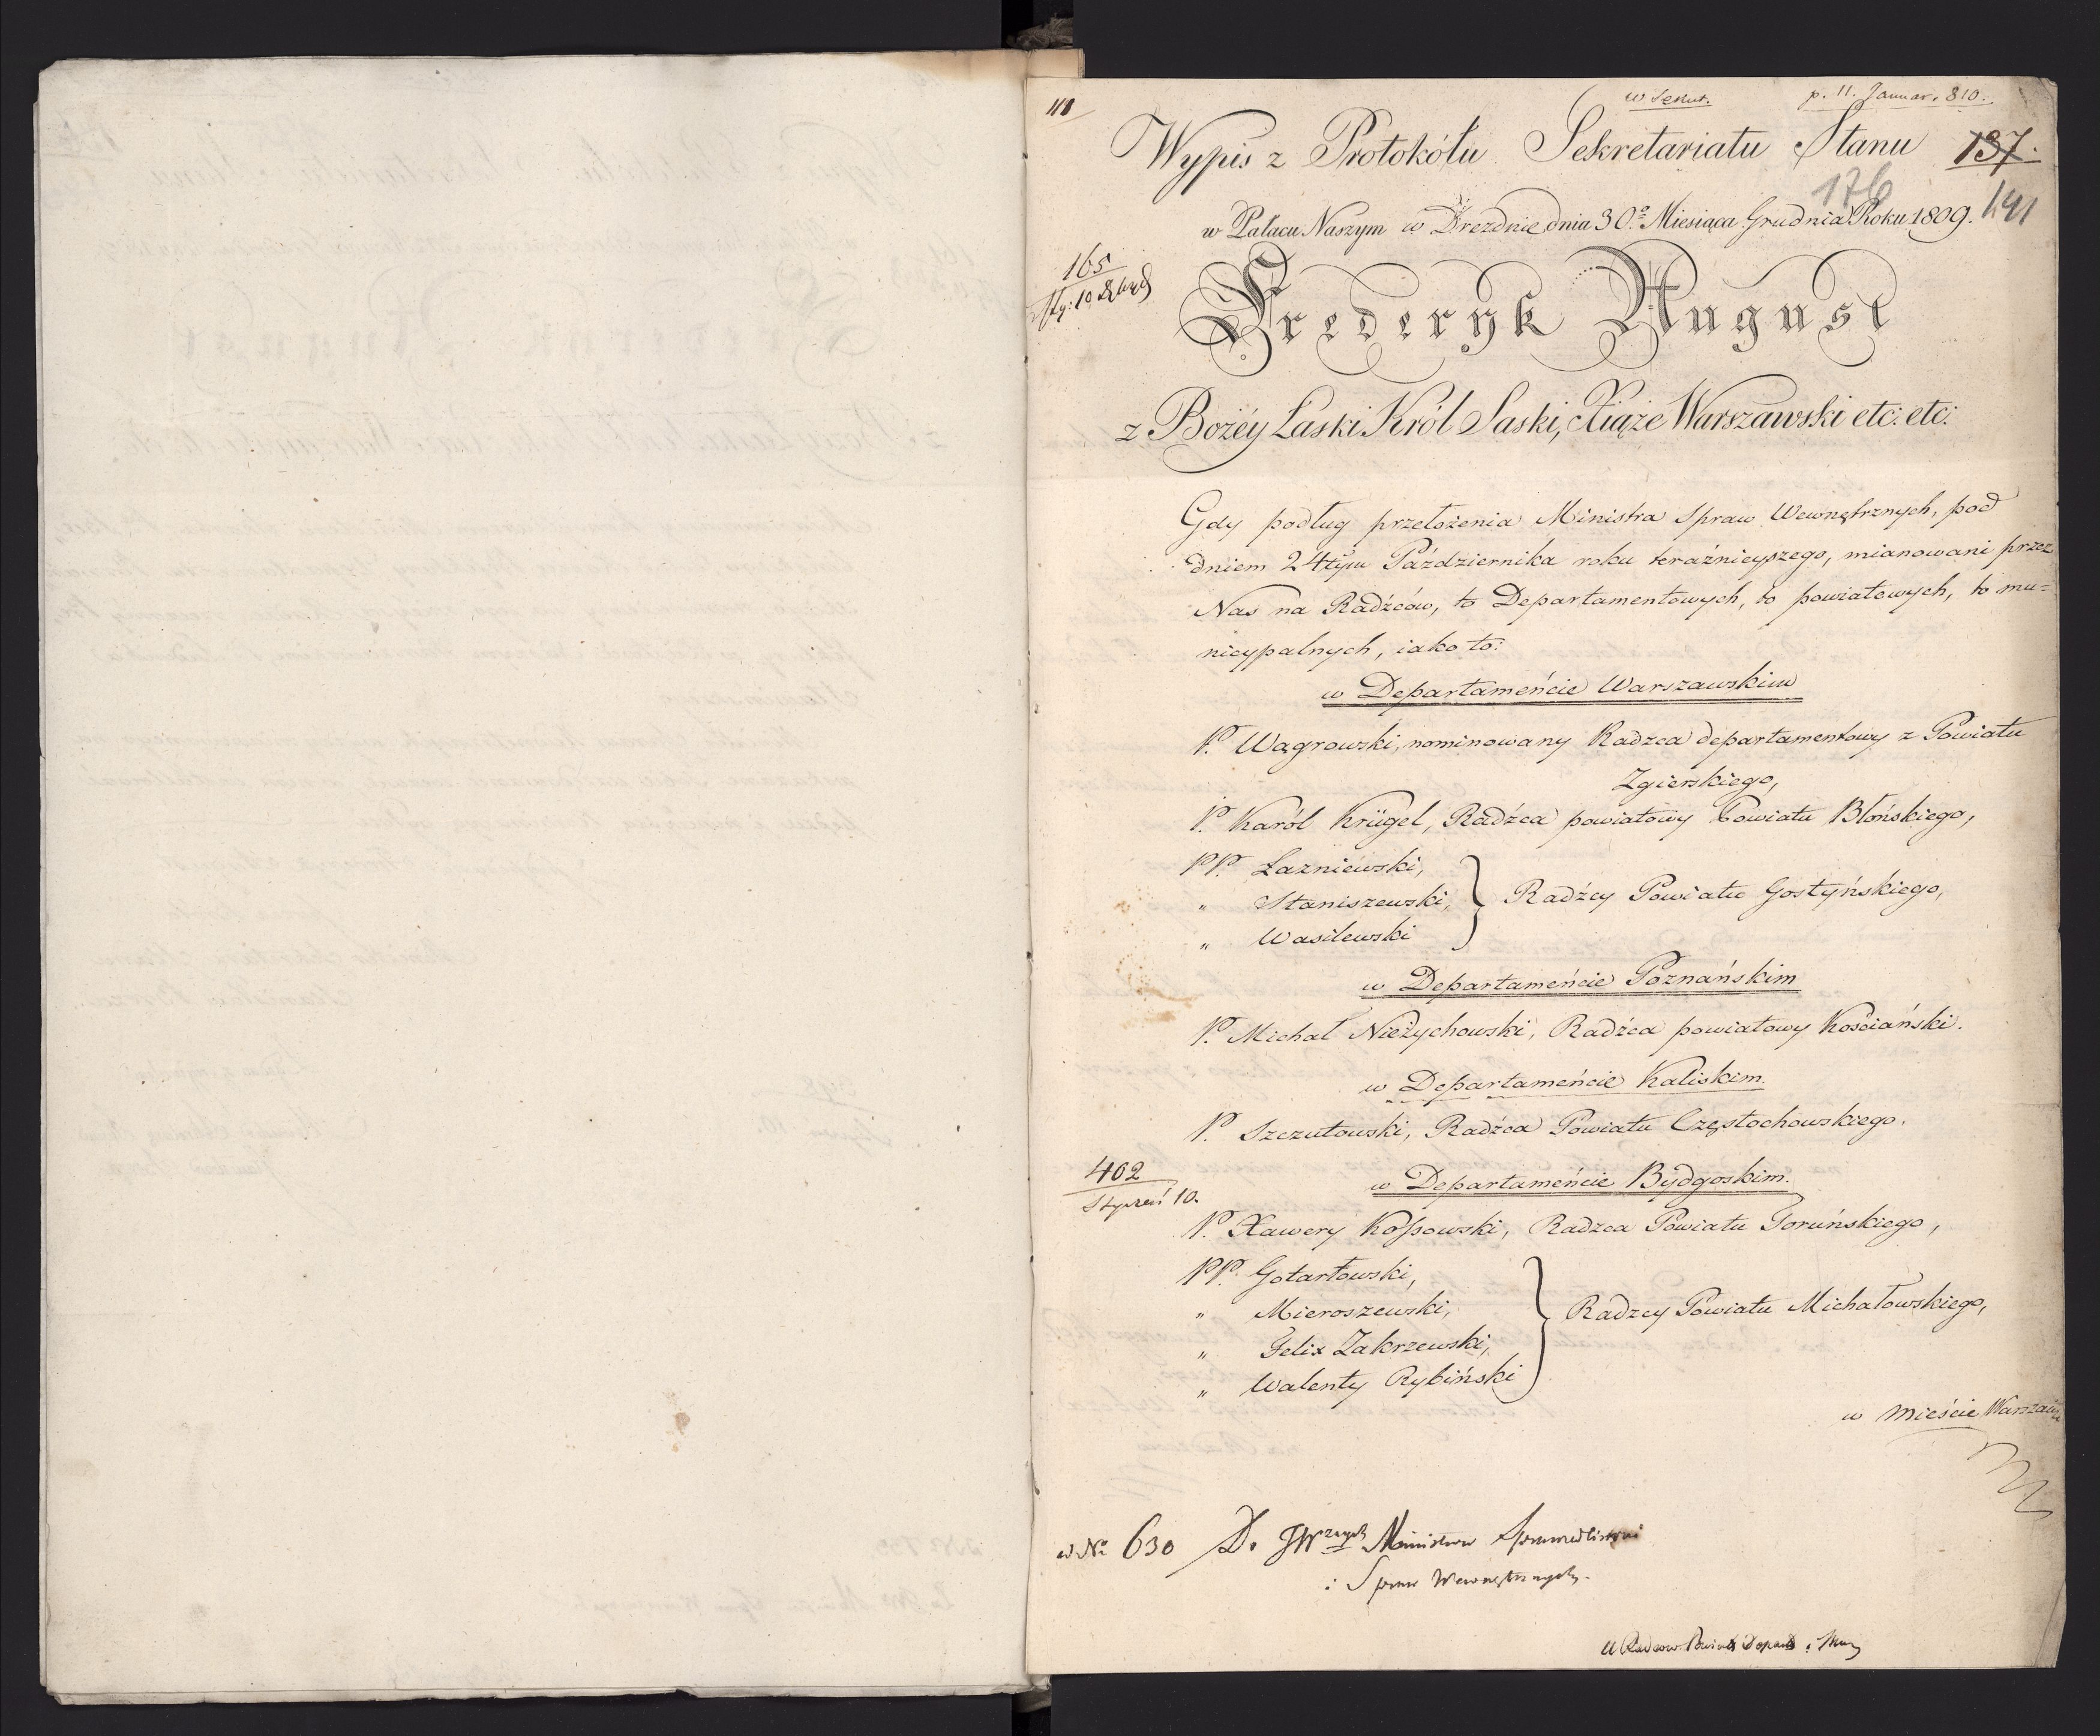 w Sekret.
p. 11. Januar. 810.
Wypis z Protokółu Sekretariatu Stanu 137.
176
141
w Pałacu Naszym w Dreznie dnia 30.º Miesiąca Grudnia Roku 1809.
165
Fryderyk August
z Bożéy Łaski Król Saski, Xiąże Warszawski etc: etc:
Gdy podług przełożenia Ministra Spraw Wewnętrznych, pod
dniem 24tym Października roku teraźnieyszego, mianowani przez
Nas na Radźców, to Departamentowych, to powiatowych, to mu=
nicypalnych, iako to:
w Departameńcie Warszawskim
P. Wagrowski, nominowany Radzca departamentowy z Powiatu
Zgierskiego,
P. Karól Krügel, Radźca powiatowy Powiatu Błońskiego,
PP. Łazniewski,
" Staniszewski, Radźcy Powiatu Gostyńskiego,
" Wasilewski
w Departameńcie Poznańskim
P. Michał Nieżychowski, Radźca powiatowy Kościański.
w Departameńcie Kaliskim.
P. Szczutowski, Radźca Powiatu Częstochowskiego.
402
Styczeń 10.
w Departameńcie Bydgoskim.
P. Xawery Kossowski, Radzca Powiatu Toruńskiego,
PP. Gotartowski,
" Mieroszewski,
" Felix Zakrzewski, Radzcy Powiatu Michałowskiego,
" Walenty Rybiński
w Mieście Warszawie
w Nº 630 D. JWznych Ministrow Sprawiedliwości
i Spraw Wewnętrznych.